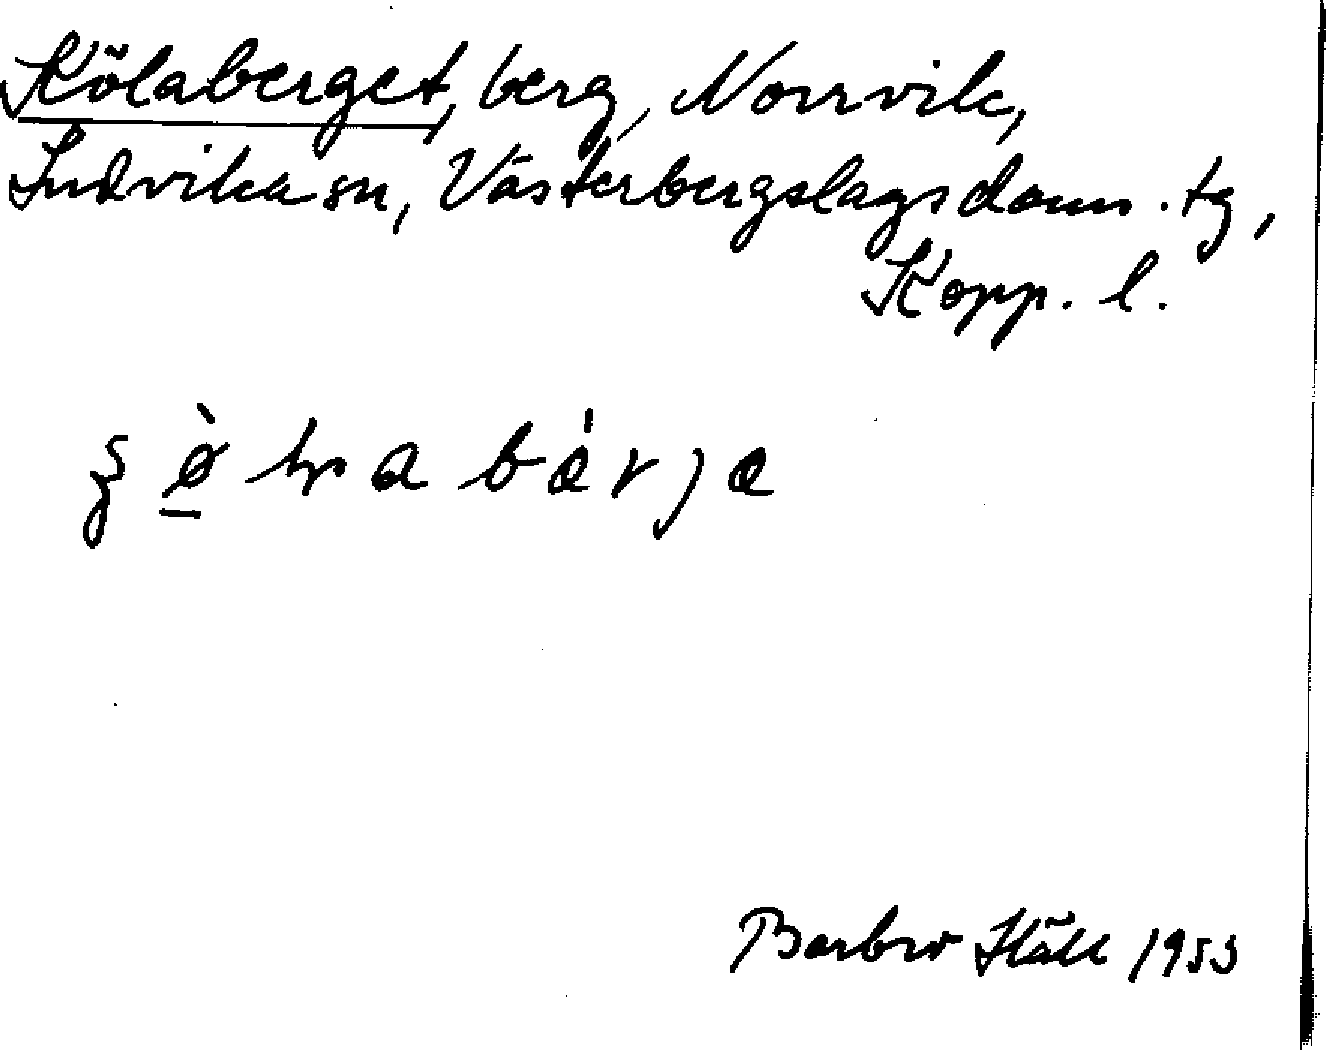 Kölaberget, berg, Norrvik,
Ludvika sn, Västerbergslags doms. tg,
Kopp. l.
Barbro Häll 1953